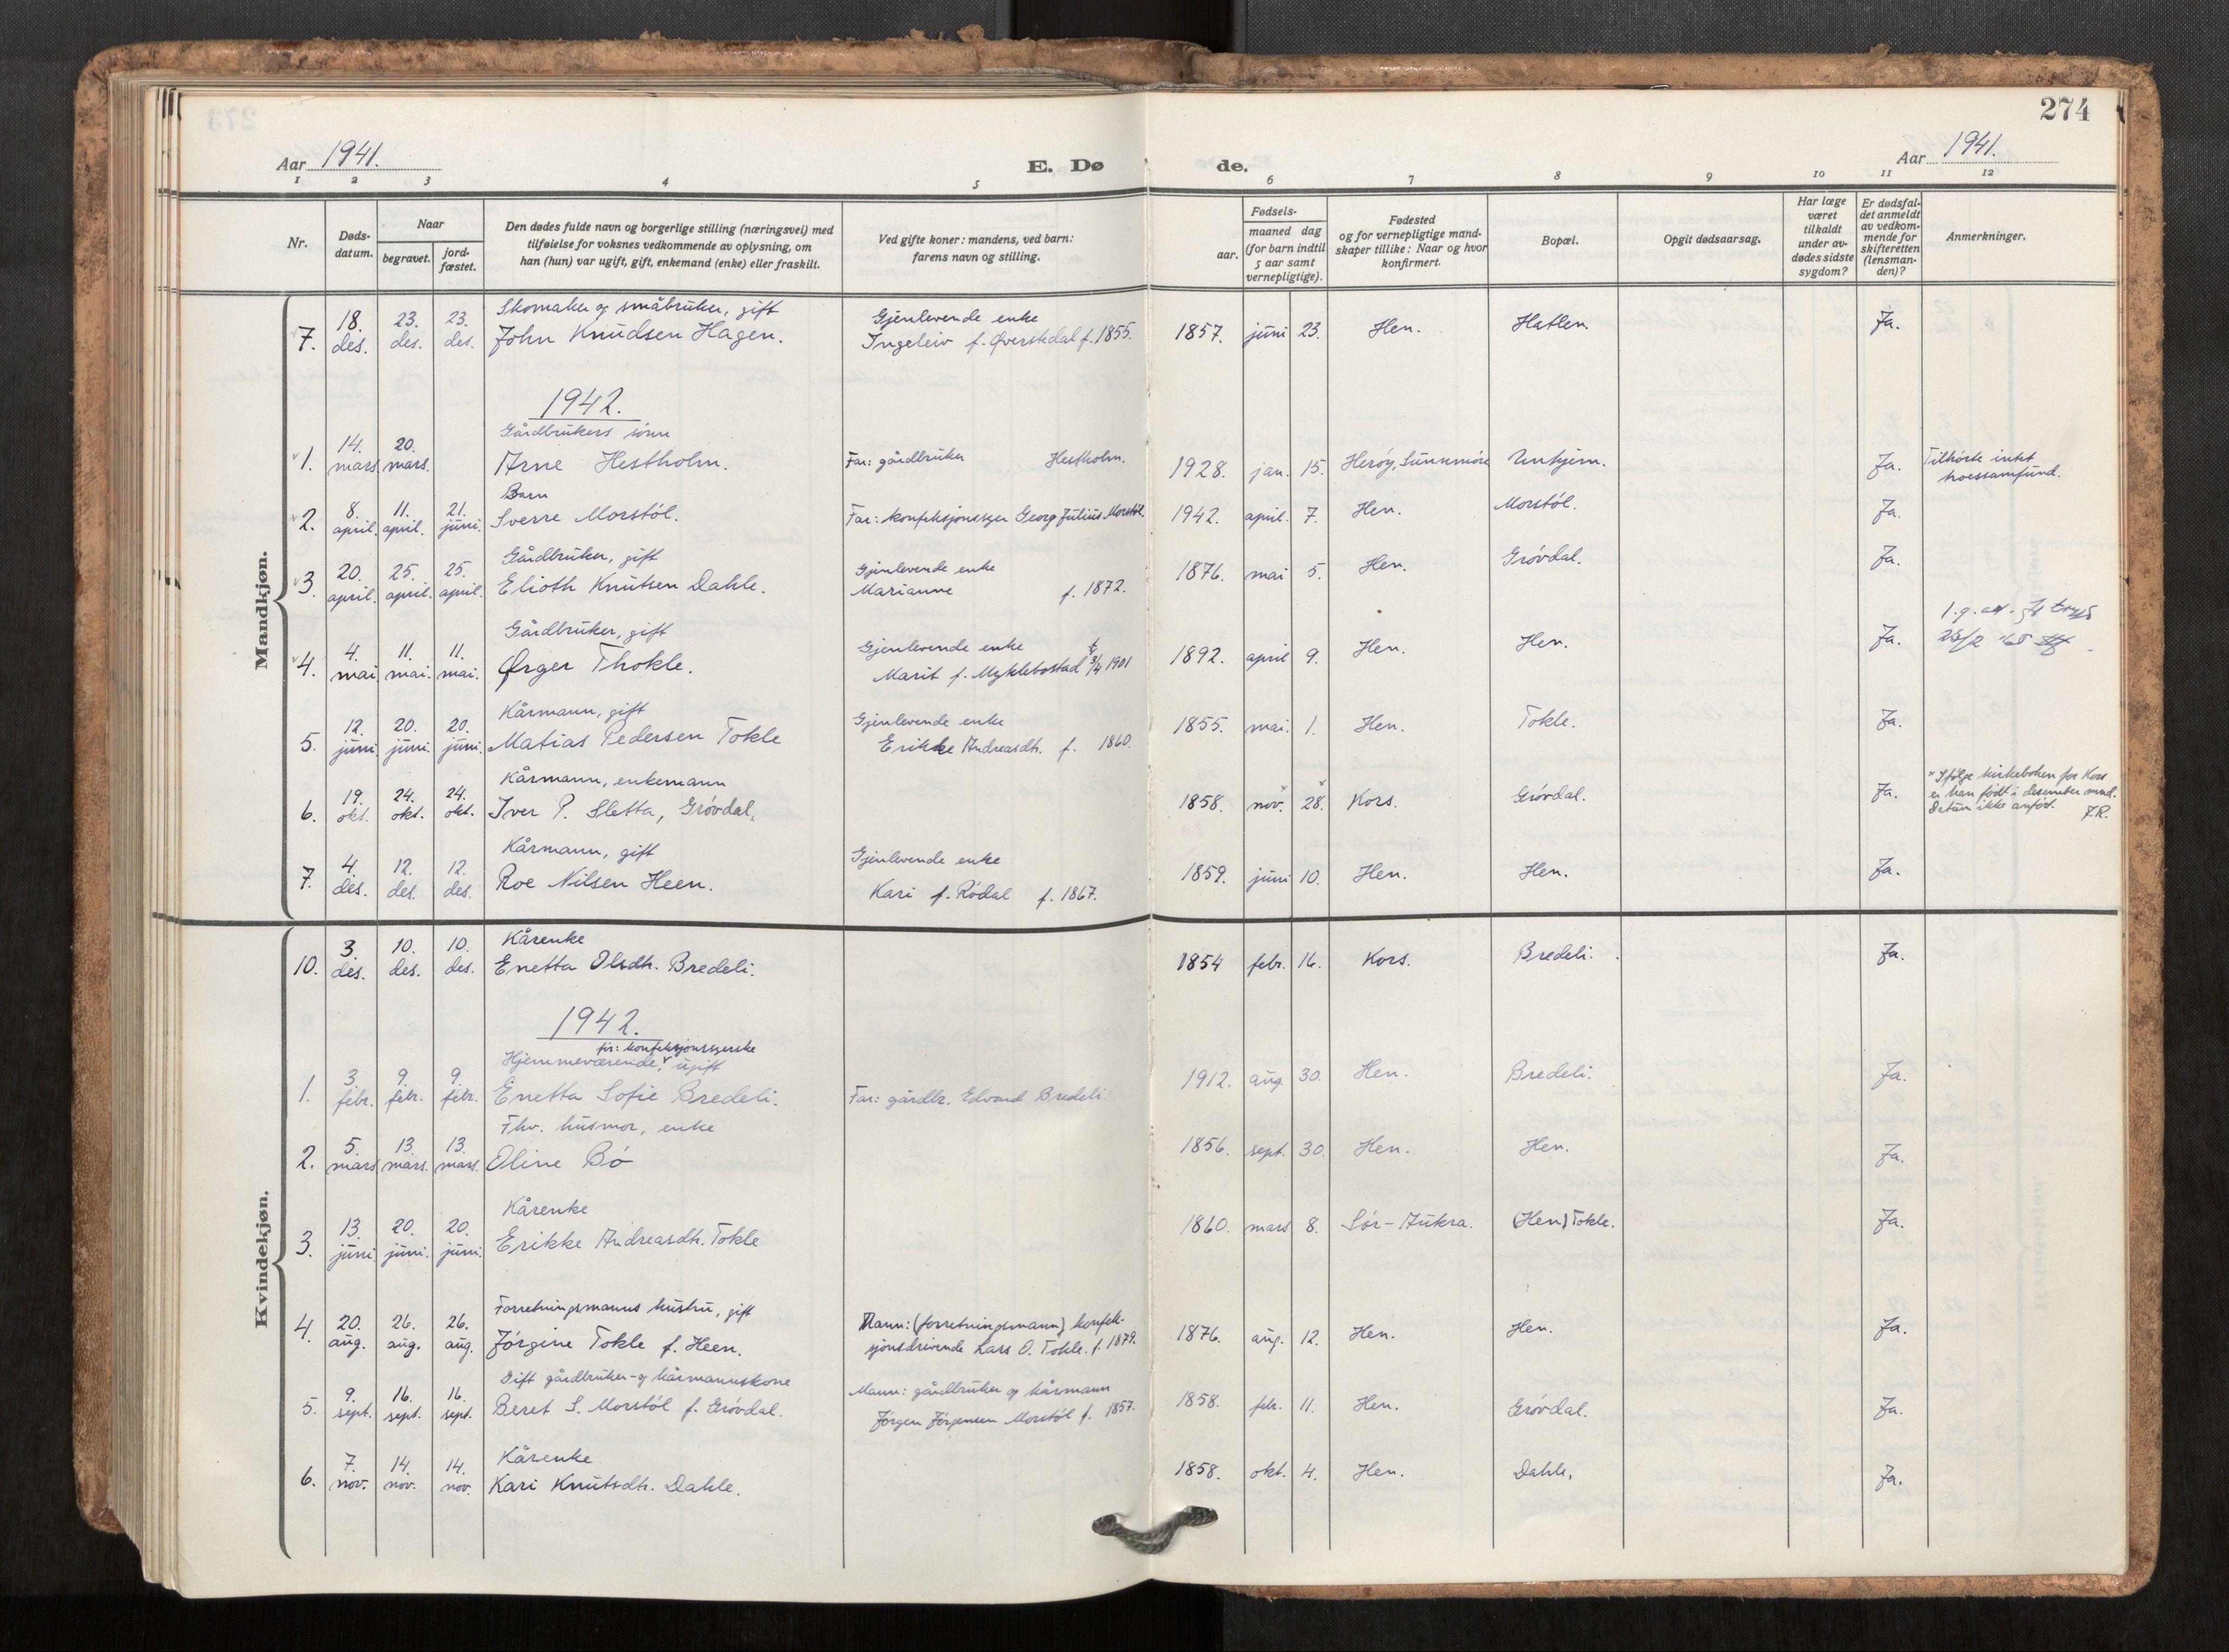 274
Aar 1941.
E. Døde.
Aar 1941.
1 2 3 4 5 6 7 8 9 10 11 12
Nr.
Døds-
datum.
Naar
begravet.
jord-
fæstet.
Den dødes fulde navn og borgerlige stilling (næringsvei) med
tilføielse for voksnes vedkommende av oplysning, om
han (hun) var ugift, gift, enkemand (enke) eller fraskilt.
Ved gifte koner: mandens, ved barn:
farens navn og stilling.
Fødsels-
aar.
maaned dag
(for barn indtil
5 aar samt
vernepligtige).
Fødested
og for vernepligtige mand-
skaper tillike: Naar og hvor
konfirmert.
Bopæl.
Opgit dødsaarsag.
Har læge
været
tilkaldt
under av-
dødes sidste
sygdom?
Er dødsfal-
det anmeldt
av vedkom-
mende for
skifteretten
(lensman-
den)?
Anmerkninger.
Mandkjøn.
Skomaker og småbruker, gift Gjenlevende enke
7. 18. des. 23. des. 23. des. John Knudsen Hagen. Ingeleiv f. Øverstedal f. 1855. 1857. juni 23. Hen. Hatlen. Ja.
1942.
Gårdbrukers sønn
1. 14. mars 20. mars. Arne Hestholm. Far: gårdbruker Hestholm. 1928. jan. 15. Herøy, Sunnmøre Unhjem. Ja. Tilhørte intet
trossamfund.
Barn
2. 8. april. 11. april. 21. juni. Sverre Morstøl. Far: konfeksjonssyer Georg Julius Morstøl. 1942. april. 7. Hen. Morstøl. Ja.
Gårdbruker, gift Gjenlevende enke
3. 20. april. 25. april. 25. april. Elioth Knutsen Dahle. Marianne f. 1872. 1876. mai 5. Hen. Grøvdal. Ja.
Gårdbruker, gift Gjenlevende enke
4. 4. mai. 11. mai. 11. mai. Ørger Thokle. Marit f. Myklebostad 3/4 1901 1892. april 9. Hen. Hen. Ja.
23/2 '65
Kårmann, gift Gjenlevende enke
5. 12. juni. 20. juni. 20. juni. Matias Pedersen Tokle Erikke Andreasdtr. f. 1860. 1855. mai. 1. Hen. Tokle. Ja.
Kårmann, enkemann
6. 19. okt. 24. okt. 24. okt. Iver P. Sletta, Grøvdal. 1858. nov. 28. Kors. Grøvdal. Ja. Ifølge kirkeboken for Kors
er han født i desember mnd.
Datum ikke anført. J.R.
Kårmann, gift Gjenlevende enke
7. 4. des. 12. des. 12. des. Roe Nilsen Heen. Kari f. Rødal f. 1867. 1859. juni 10. Hen. Hen. Ja.
Kvindekjøn.
Kårenke
10. 3. des. 10. des. 10. des. Enetta Olsdtr. Bredeli. 1854 febr. 16. Kors. Bredeli. Ja.
1942.
før: konfeksjonssyerske
Hjemmeværende, ugift
1. 3. febr. 9. febr. 9. febr. Enetta Sofie Bredeli. Far: gårdbr. Edvard Bredeli. 1912. aug. 30. Hen. Bredeli. Ja.
Fhv. husmor, enke
2. 5. mars 13. mars. 13. mars. Oline Bø 1856. sept. 30. Hen. Hen. Ja.
Kårenke
3. 13. juni 20. juni. 20. juni. Erikke Andreasdtr. Tokle 1860. mars 8. Sør-Aukra. (Hen) Tokle. Ja.
Forretningsmanns hustru, gift Mann: (forretningsmann) konfek-
4. 20. aug. 26. aug. 26. aug. Jørgine Tokle f. Heen. sjonsdrivende Lars O. Tokle. f. 1879. 1876. aug. 12. Hen. Hen. Ja.
Gift gårdbruker- og kårmannskone Mann: gårdbruker og kårmann
5. 9. sept. 16. sept. 16. sept. Beret S. Morstøl f. Grøvdal. Jørgen Jørgensen Morstøl f. 1857. 1858. febr. 11. Hen. Grøvdal. Ja.
Kårenke
6. 7. nov. 14. nov. 14. nov. Kari Knutsdtr. Dahle. 1858. okt. 4. Hen. Dahle. Ja.